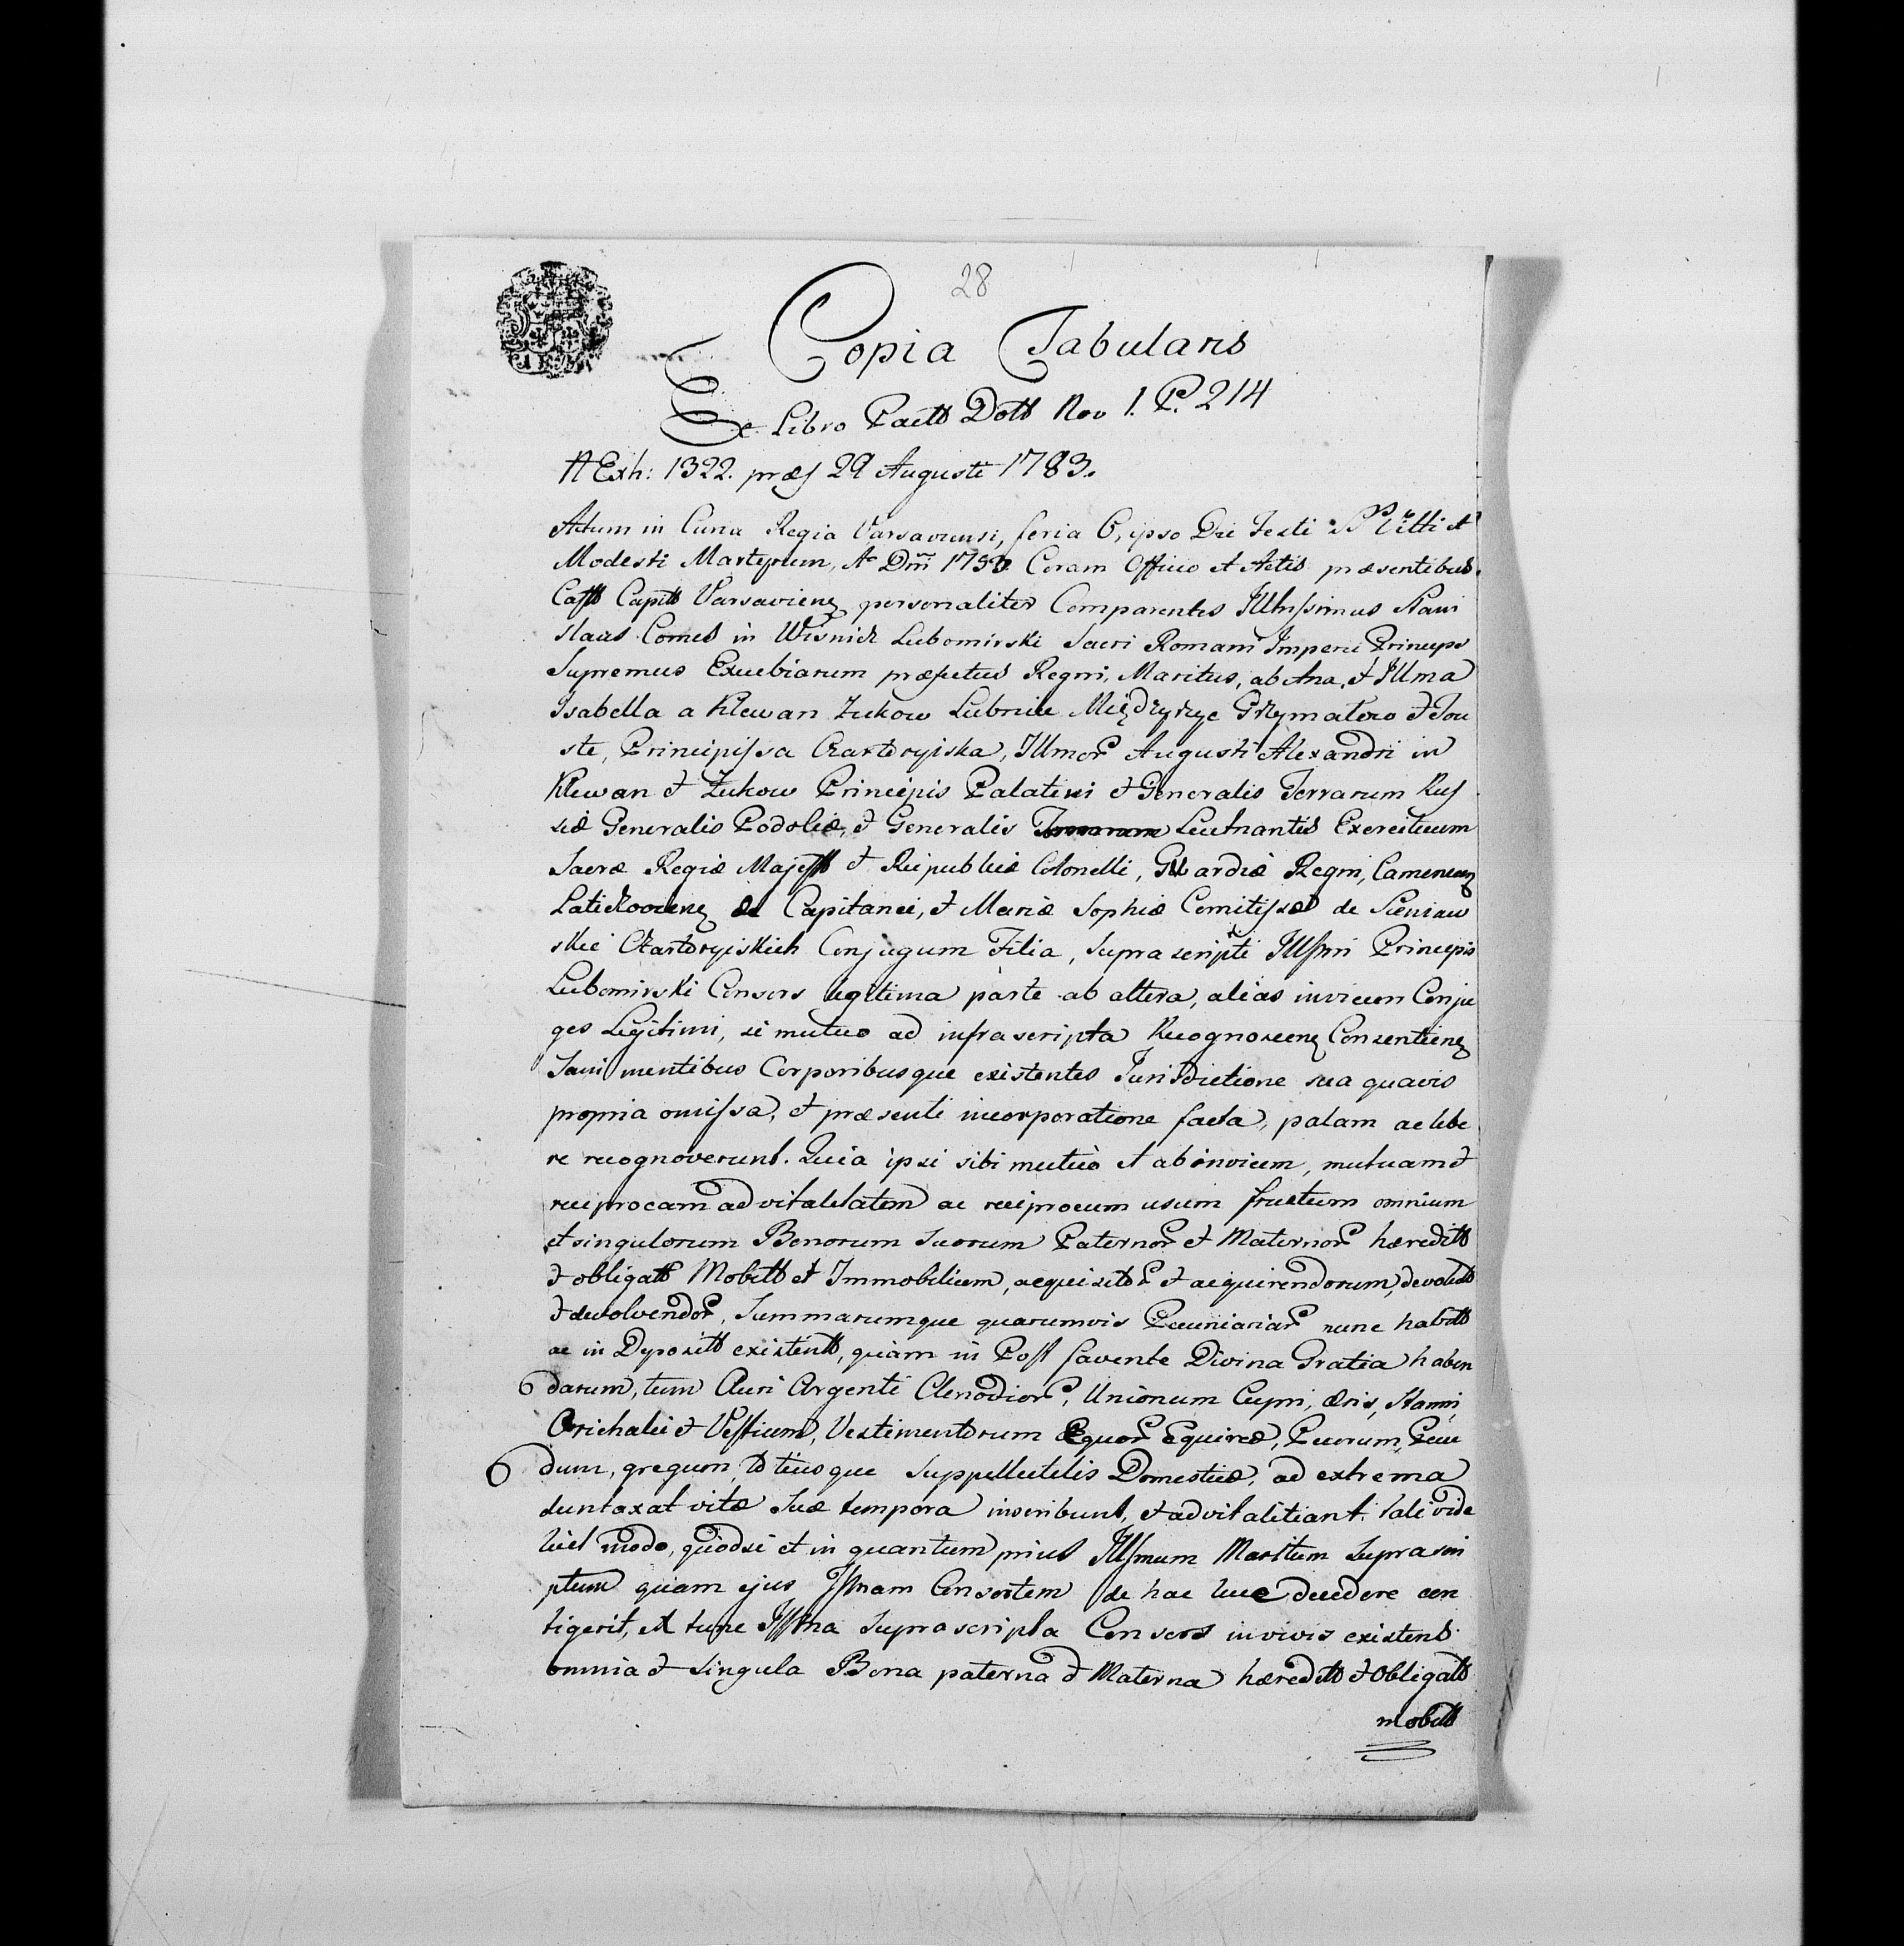 28
Copia Tabularis
De Libro Pactt Dott Nov 1. P. 214
N Exh: 1322. præs 29 Augusti 1783.
Actum in Curia Regia Varsaviensi, feria 6, ipso Die Festi SS Vitti et
Modesti Martyrum, Ao Dni 1753 Coram Officio et Actis præsentibus
Castt Capitt Varsavienq personaliter Comparentes Illussimus Stani
slaus Comes in Wisnicz Lubomirski Sacri Romani Imperii Princeps
Supremus Excubiarum præfectus Regni, Maritus, ab Una, et Illma
Isabella a Klewan Zukow Lubnice Międzyrzyc Grzymałow et Tou
ste, Principissa Czartoryiska, Illmor Augusti Alexandri in
Klewan et Zukow Principis Palatini et Generalis Terrarum Rus
siæ Generalis Podoliæ, et Generalis Leutnantis Exercituum
Sacræ Regiæ Majestt et Reipublicæ Colonelli, Guardiæ Regni, Camenenq
Laticzovienq & Capitanei, et Mariæ Sophiæ Comitissæ de Sieniaw
skie Czartoryiskich Conjugum Filia, supra scripti Illsmi Principis
Lubomirski Consors legitima parte ab altera, alias invicem Conju
ges Legitimi, si mutuo ad infrascripta Recognoscenq Consentienq
Sani mentibus Corporibusque existentes Jurisdictione sua quavis
propria omissa, et præsenti incorporatione facta, palam ac libe
re recognoverunt. Quia ipsi sibi mutuò et ab invicem, mutuam et
reciprocam advitalitatem ac reciprocum usum fructum omnium
et singulorum Bonorum Suorum Paternor et Maternor hæreditt
et obligatt Mobitt et Immobilium, acquisitor et acquirendorum, devolutt
et devolvendor, Summarumque quarumvis Pecuniariar nunc habitt
ac in Depositt existentt, quàm in Post favente Divina Gratia haben
darum, tum Auri Argenti Clenodior, Unionum Cupri, æris, Stanni,
Orichalci et Vestium, Vestimentorum Equor Equireæ, Pecorum, Pecu
dum, gregum, totiusque Suppellectilis Domesticæ, ad extrema
duntaxat vitæ Suæ tempora inscribunt, et advitalitiant tali vide
licèt modo, quòdsi et in quantum prius Illsmum Maritum Suprascri
ptum quàm ejus Issmam Consortem de hac luce decedere con
tigerit, ex tunc Issma Suprascripta Consors in vivis existens
omnia et singula Bona paterna et Materna hæreditt et Obligatt
mobitt